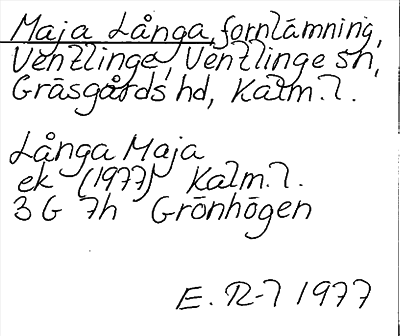 Maja Långa, fornlämning,
Ventlinge, Ventlinge sn,
Gräsgårds hd, Kalm. l.
Långa Maja
ek (1977) Kalm. l.
3 G 7h Grönhögen
E. R-l 1977